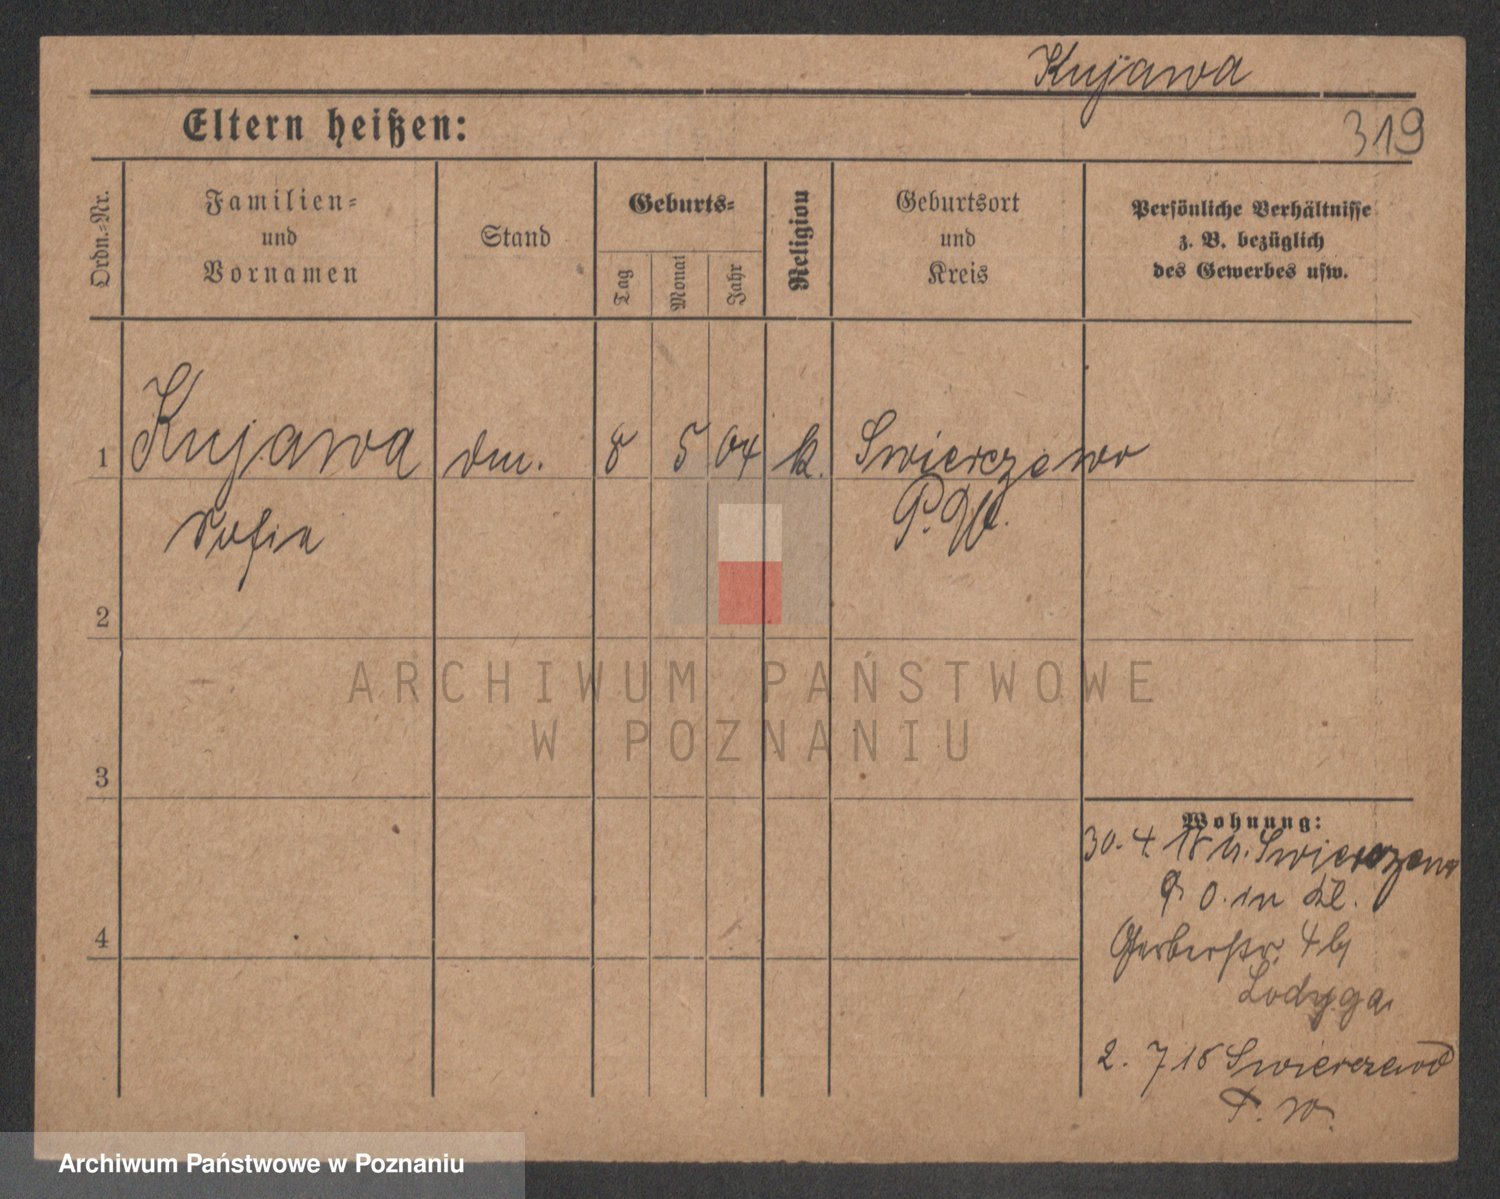 Kujawa
319
Eltern heißen:
Ordn.-Nr.
Familien- und Vornamen
Stand
Geburts-
Tag
Monat
Jahr
Religion
Geburtsort und Kreis
Persönliche Verhältnisse
z. B. bezüglich
des Gewerbes usw.
1 Kujawa dm. 8 5 04 k. Swierczewo
Sofie P. W.
2
3
4
Wohnung:
30. 4. 18 v. Swierczewo
P. O. in
Gerberstr. 4b
Lodyga
2. 7 18 Swierczewo
P. W.
ARCHIWUM PAŃSTWOWE
W POZNANIU
Archiwum Państwowe w Poznaniu